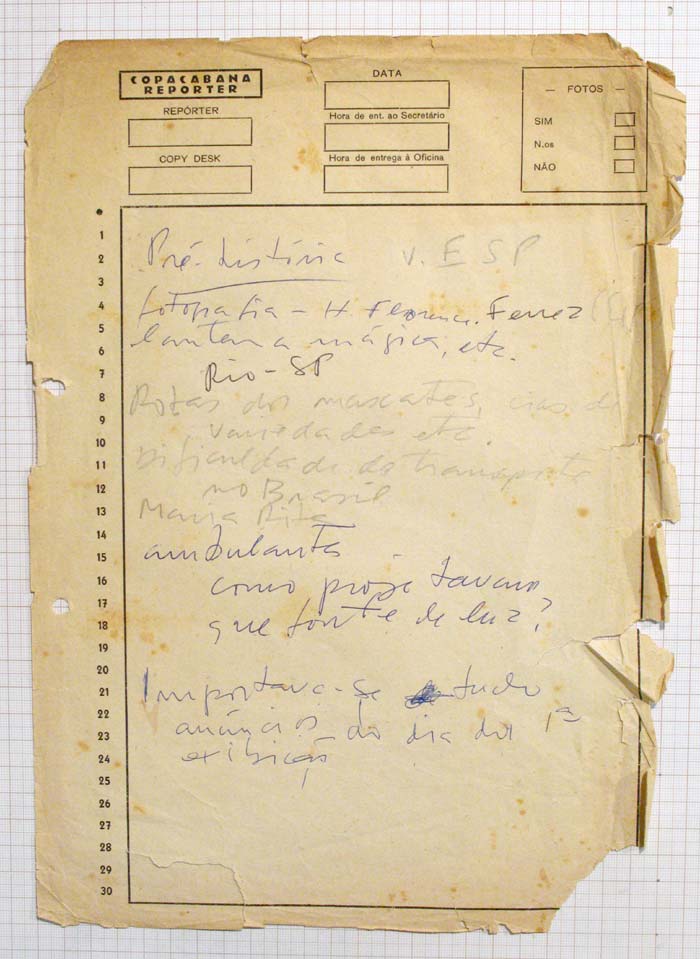 COPACABANA
REPORTER
REPÓRTER
COPY DESK
DATA
Hora de ent. ao Secretário
Hora de entrega à Oficina
— FOTOS —
SIM
N.os
NÃO
1
2
3
4
5
6
7
8
9
10
11
12
13
14
15
16
17
18
19
20
21
22
23
24
25
26
27
28
29
30
Pré-história v. ESP
fotografia - H. Florence. Ferrez
lanterna mágica, etc.
Rio - SP
Rotas dos mascates, cias de
variedades etc.
Dificuldade do transporte
no Brasil
Maria Rita
ambulantes
como projetavam
que fonte de luz?
Importava-se tudo
anúncios do dia da 1ª
exibição